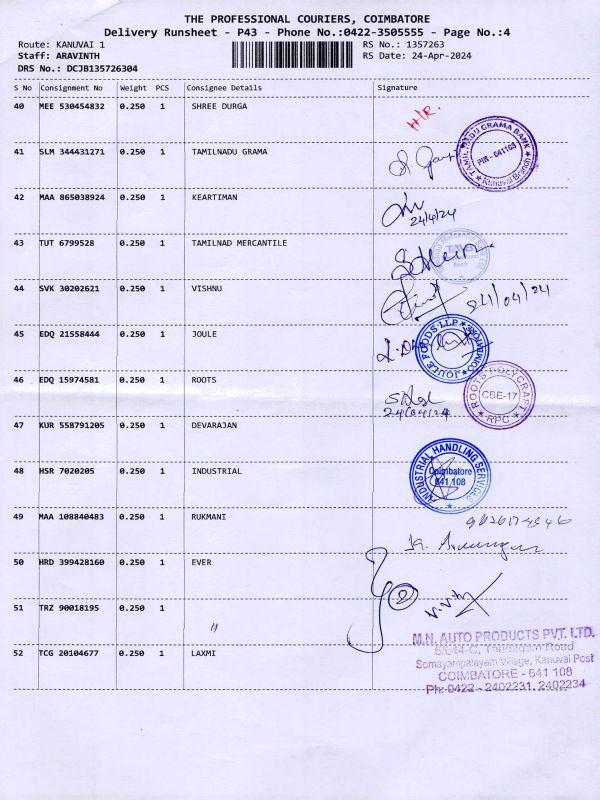 THE PROFESSIONAL COURIERS, COIMBATORE
Delivery Runsheet - P43 - Phone No.:0422-3505555 - Page No.:4
Route: KANUVAI 1 RS No.: 1357263
Staff: ARAVINTH RS Date: 24-Apr-2024
DRS No.: DCJB135726304
S No Consignment No Weight PCS Consignee Details Signature
40 MEE 530454832 0.250 1 SHREE DURGA H/R.
TAMIL NADU GRAMA BANK
PIN - 641108
Kanuvai Branch
41 SLM 344431271 0.250 1 TAMILNADU GRAMA
42 MAA 865038924 0.250 1 KEARTIMAN
24/4/24
43 TUT 6799528 0.250 1 TAMILNAD MERCANTILE
44 SVK 30202621 0.250 1 VISHNU 24/04/24
45 EDQ 21558444 0.250 1 JOULE
JOULE FOODS LLP
46 EDQ 15974581 0.250 1 ROOTS
24/04/24
ROOTS POLYCRAFT
CBE-17
RPC
47 KUR 558791205 0.250 1 DEVARAJAN
48 HSR 7020205 0.250 1 INDUSTRIAL
INDUSTRIAL HANDLING SERVICES
Coimbatore
641 108
49 MAA 108840483 0.250 1 RUKMANI
50 HRD 399428160 0.250 1 EVER
2
51 TRZ 90018195 0.250 1 "
52 TCG 20104677 0.250 1 LAXMI
M.N. AUTO PRODUCTS PVT. LTD.
5/644-C, Thadagam Road
Somayampalayam Village, Kanuvai Post
COIMBATORE - 641 108
Ph: 0422 - 2402231, 2402234